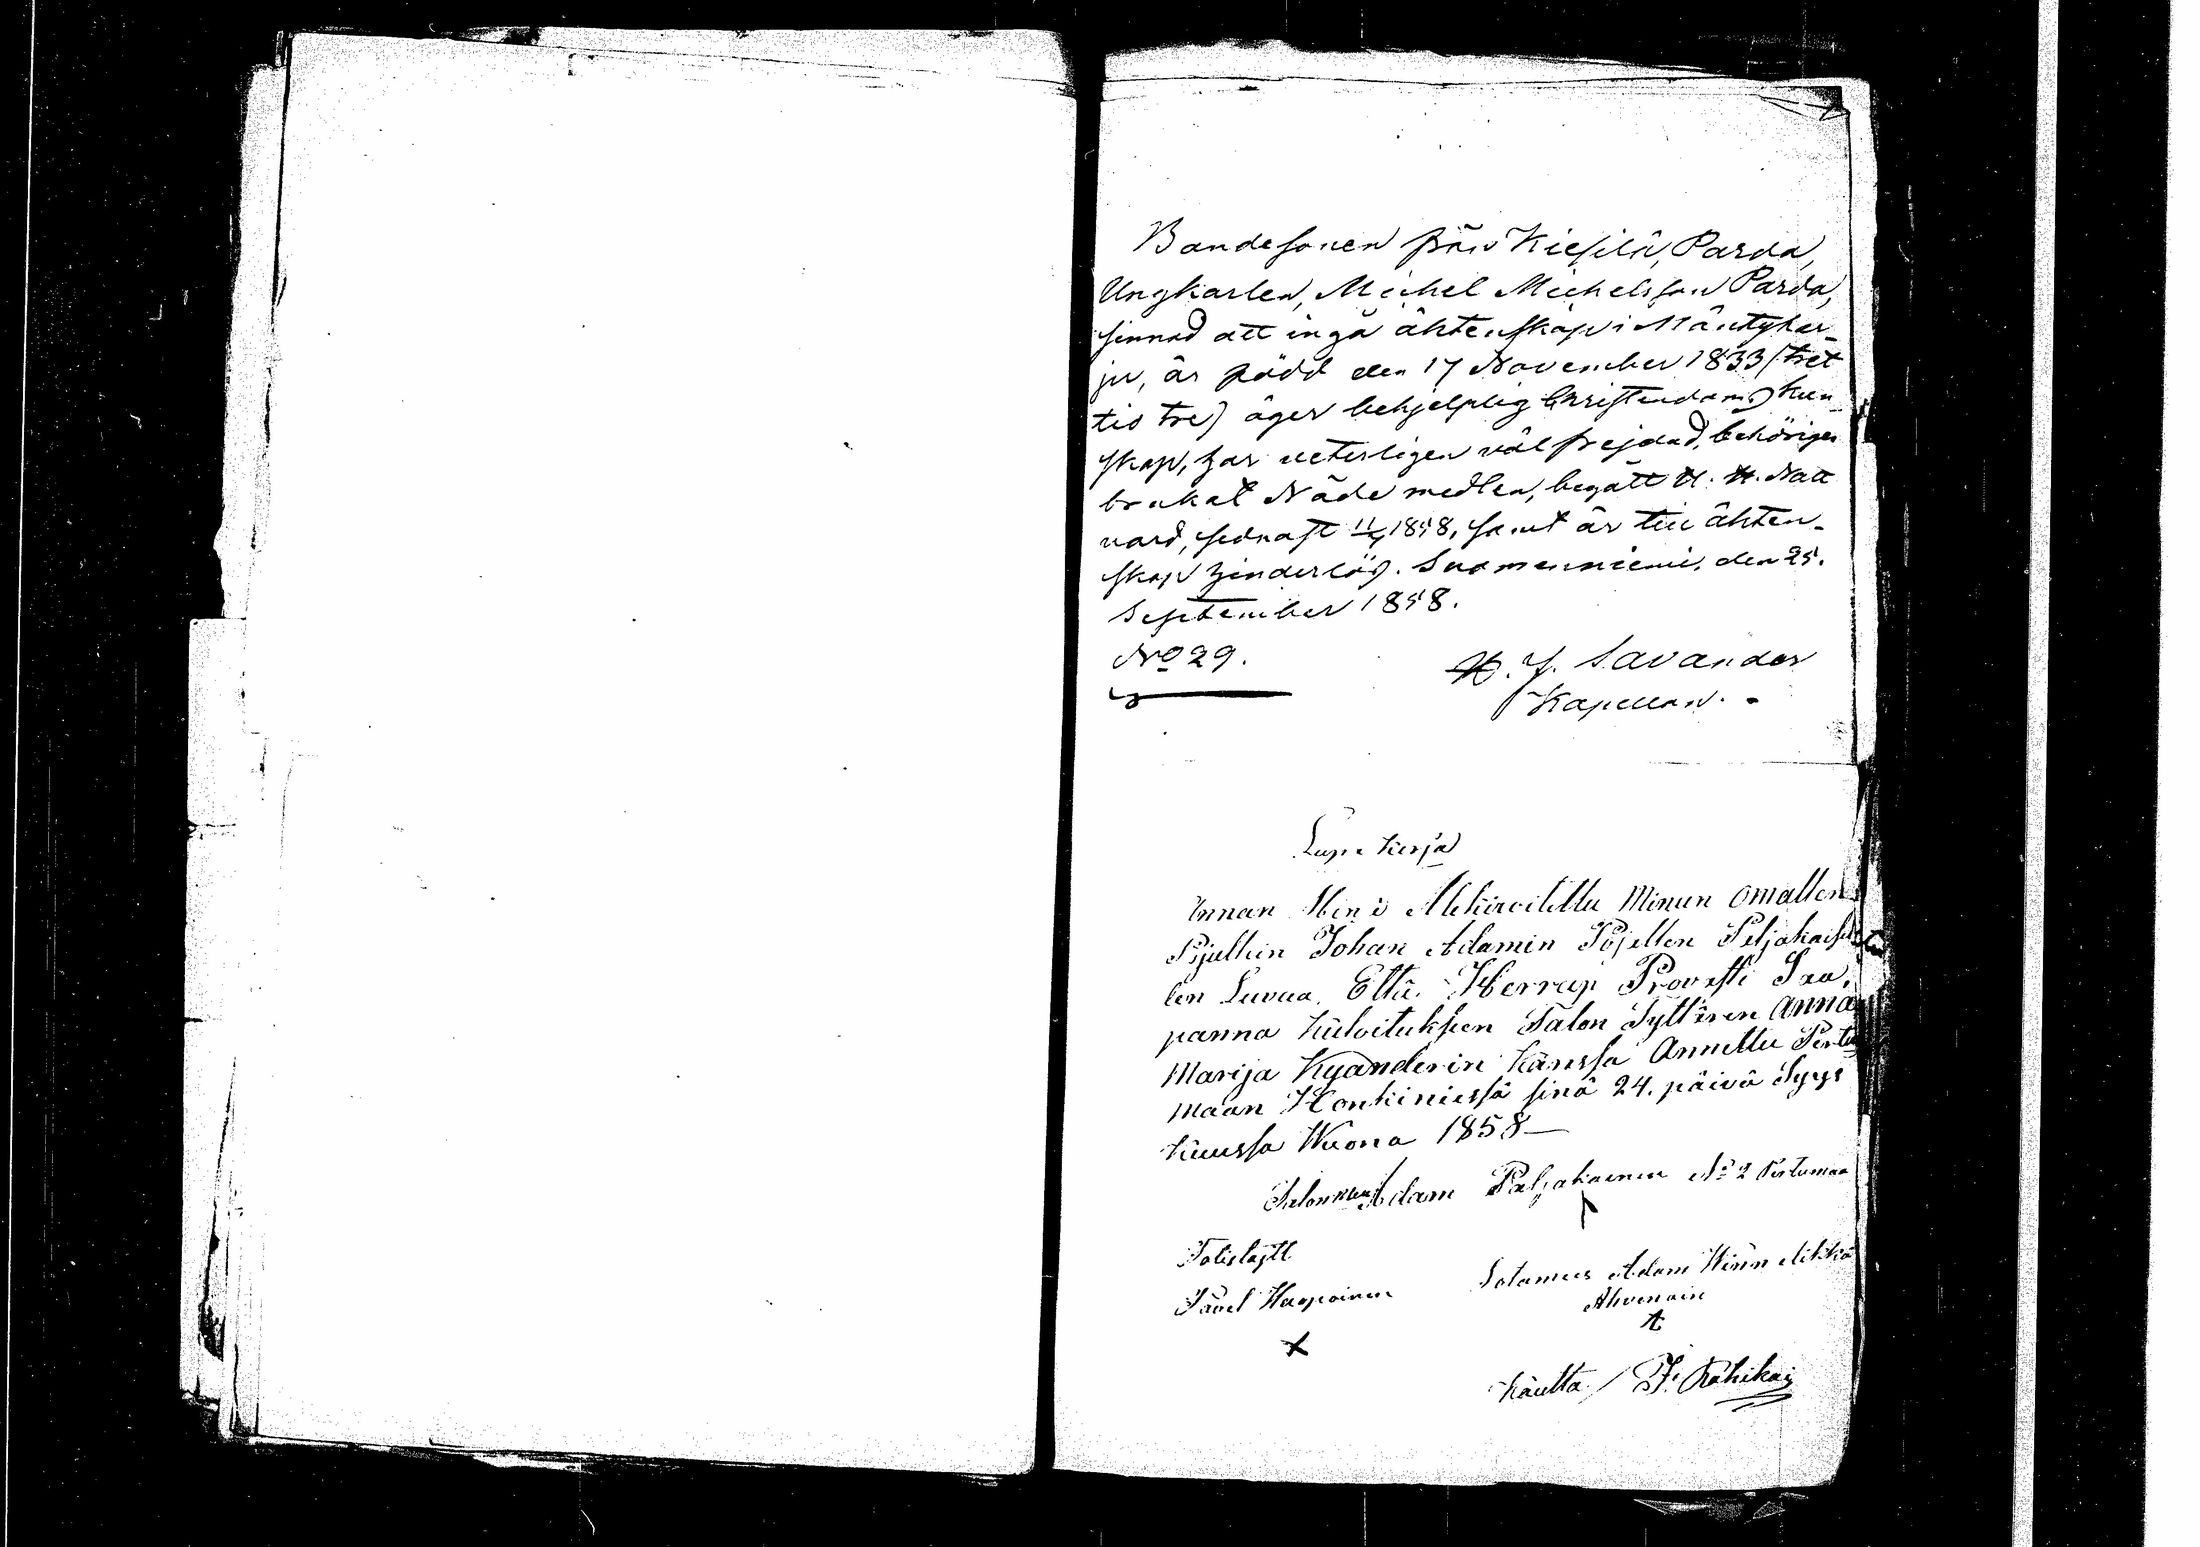 Bondesonen från Kiesilä, Parda,
Ungkarlen, Michel Michelsson Parda,
sinnad att ingå äktenskap i Mäntyhar-
ju, är född den 17 November 1833 (tret
tio tre) äger behjelplig Christendoms kun-
skap, har veterligen väl frejdad, behörigen
brukat Nådemedlen, begått H. H. Natt
vard, sednast 11/7 1858, samt är till äkten-
skap hinderlös. Suomenniemi, den 25.
September 1858.
No 29.
H. J. Savander
Kapellan.
Lupa kirja
Annan Minä Allekirvoitettu Minun omallen
Pojallein Johan Adamin Pojallen Paljakaisel
len Luvan, Että Herran Provasti Saa,
panna kuloituksen Talon Tyttären Anna
Marija Kyanderin kanssa Annettu Pertu
maan Honkiniessä sinä 24. päivä Syys
kuussa Wuona 1858—
Talon Adam Paljakainen No 2 Pertumaa
Totistajtt
Påvel Haapoinen
Sotamies Adam Hinn Mikkä
Ahvenain
kautta / J. Rähikäi